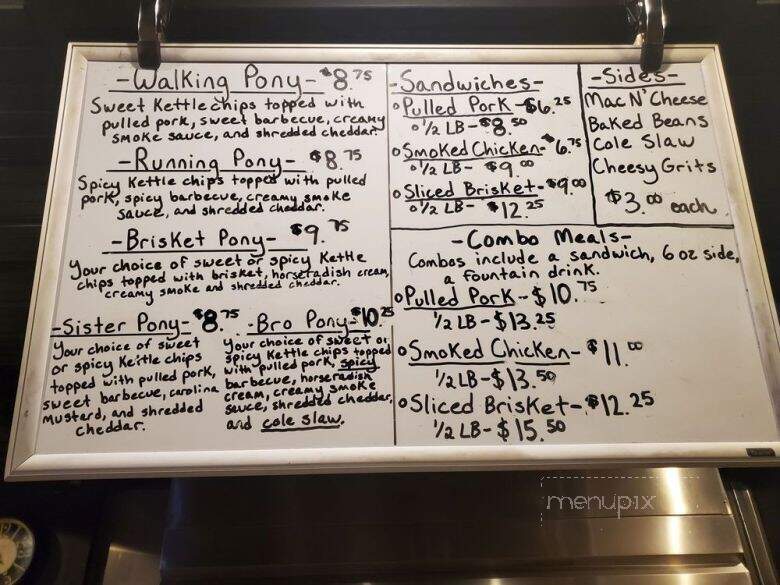 -Walking Pony- $8.75
Sweet Kettle chips topped with
pulled pork, sweet barbecue, creamy
smoke sauce, and shredded cheddar.
-Running Pony- $8.75
Spicy Kettle chips topped with pulled
pork, spicy barbecue, creamy smoke
sauce, and shredded cheddar.
-Brisket Pony- $9.75
Your choice of sweet or spicy Kettle
chips topped with brisket, horseradish cream,
creamy smoke and shredded cheddar.
-Sister Pony- $8.75
Your choice of sweet
or spicy Kettle chips
topped with pulled pork,
sweet barbecue, carolina
mustard, and shredded
cheddar.
-Bro Pony- $10.25
Your choice of sweet or
spicy Kettle chips topped
with pulled pork, spicy
barbecue, horseradish
cream, creamy smoke
sauce, shredded cheddar,
and cole slaw.
-Sandwiches-
Pulled Pork-$6.25
1/2 LB-$8.50
Smoked Chicken-$6.75
1/2 LB- $9.00
Sliced Brisket-$9.00
1/2 LB- $12.25
-Sides-
Mac N' Cheese
Baked Beans
Cole Slaw
Cheesy Grits
$3.00 each
-Combo Meals-
Combos include a sandwich, 6 oz side,
a fountain drink.
Pulled Pork-$10.75
1/2 LB-$13.25
Smoked Chicken-$11.00
1/2 LB-$13.50
Sliced Brisket-$12.25
1/2 LB-$15.50
menupix